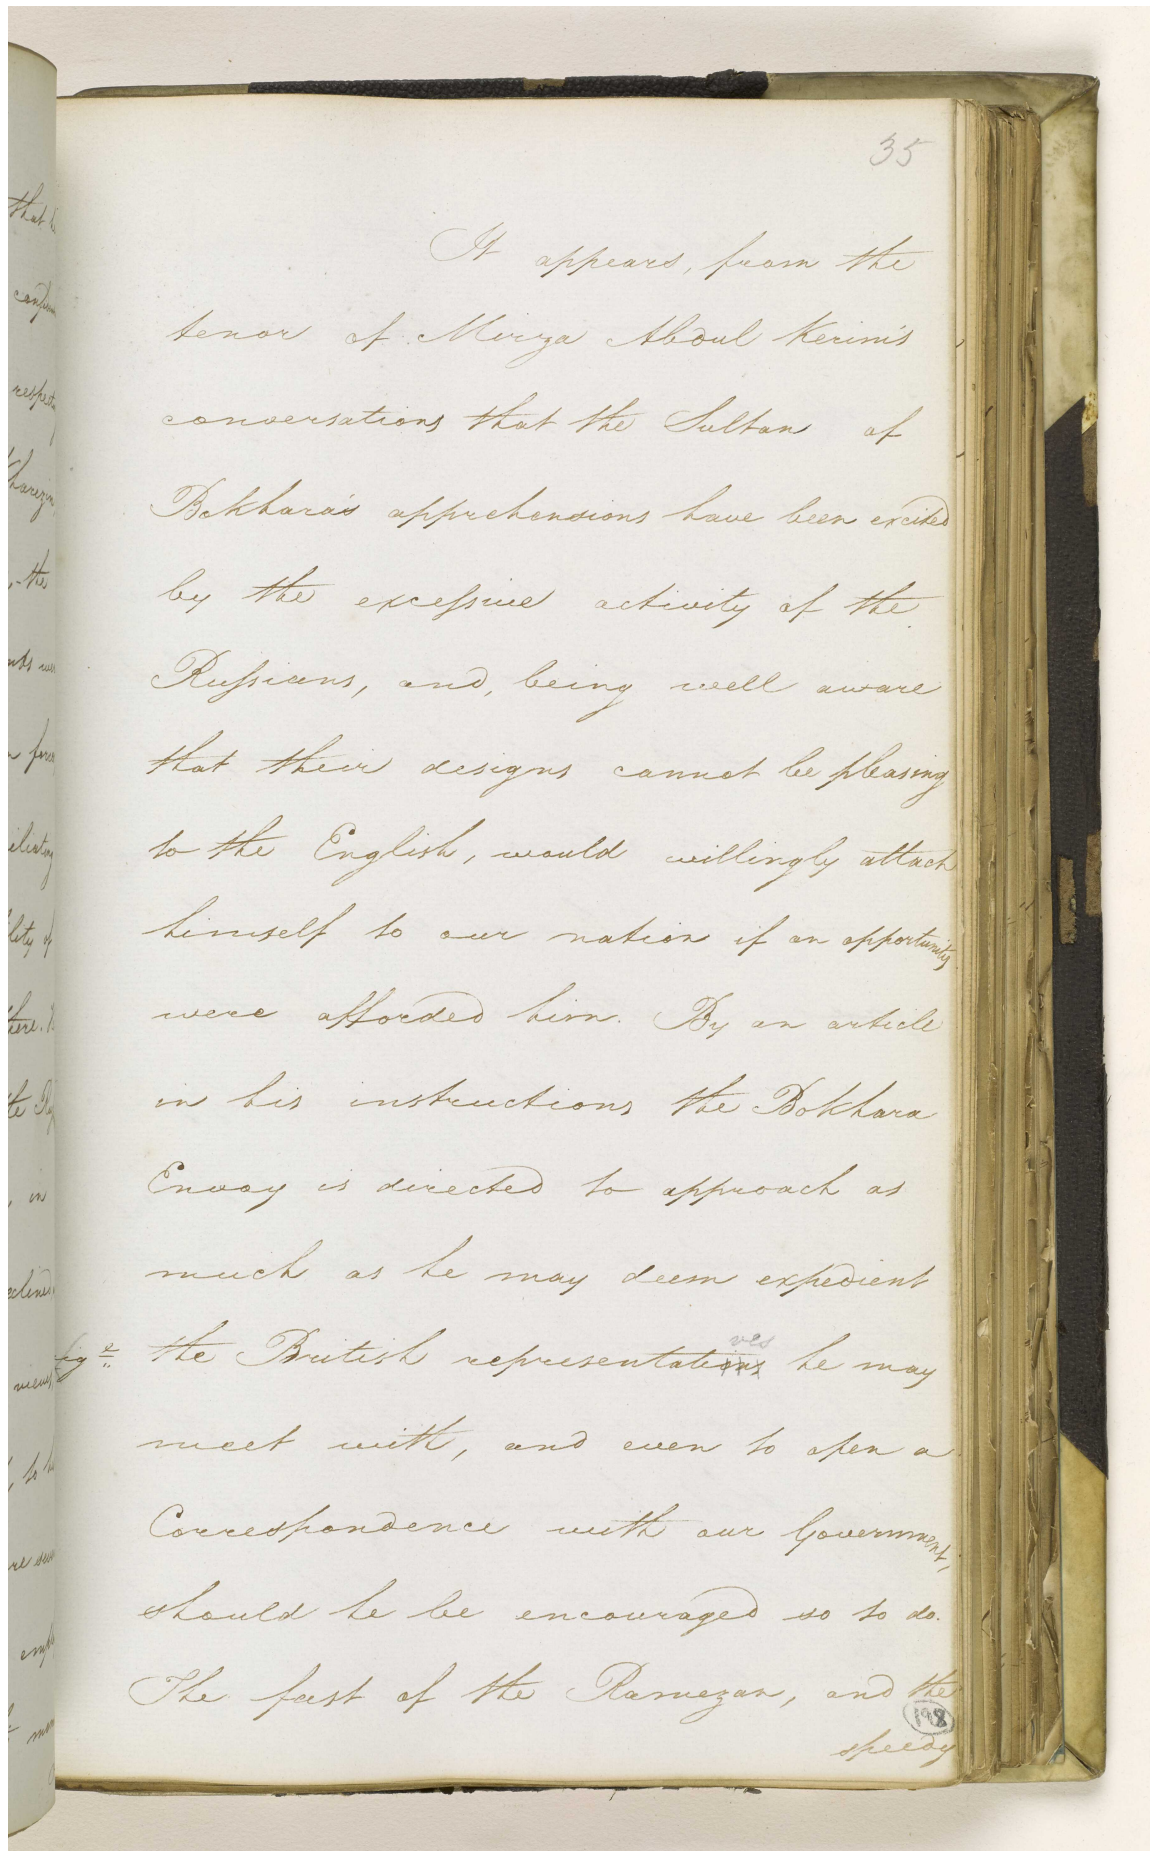 35
It appears, from the
tenor of Mirza Abdul Kerim's
conversations that the Sultan of
Bokhara's apprehensions have been excited
by the exceſsive activity of the
Ruſsians, and, being well aware
that their designs cannot be pleasing
to the English, would willingly attach
himself to our nation if an opportunity
were afforded him. By an article
in his instructions the Bokhara
Envoy is directed to approach as
much as he may deem expedient
ves
the British representations he may
meet with, and even to open a
Correspondence with our Government,
should he be encouraged so to do.
The fast of the Ramezan, and the
198
speedy